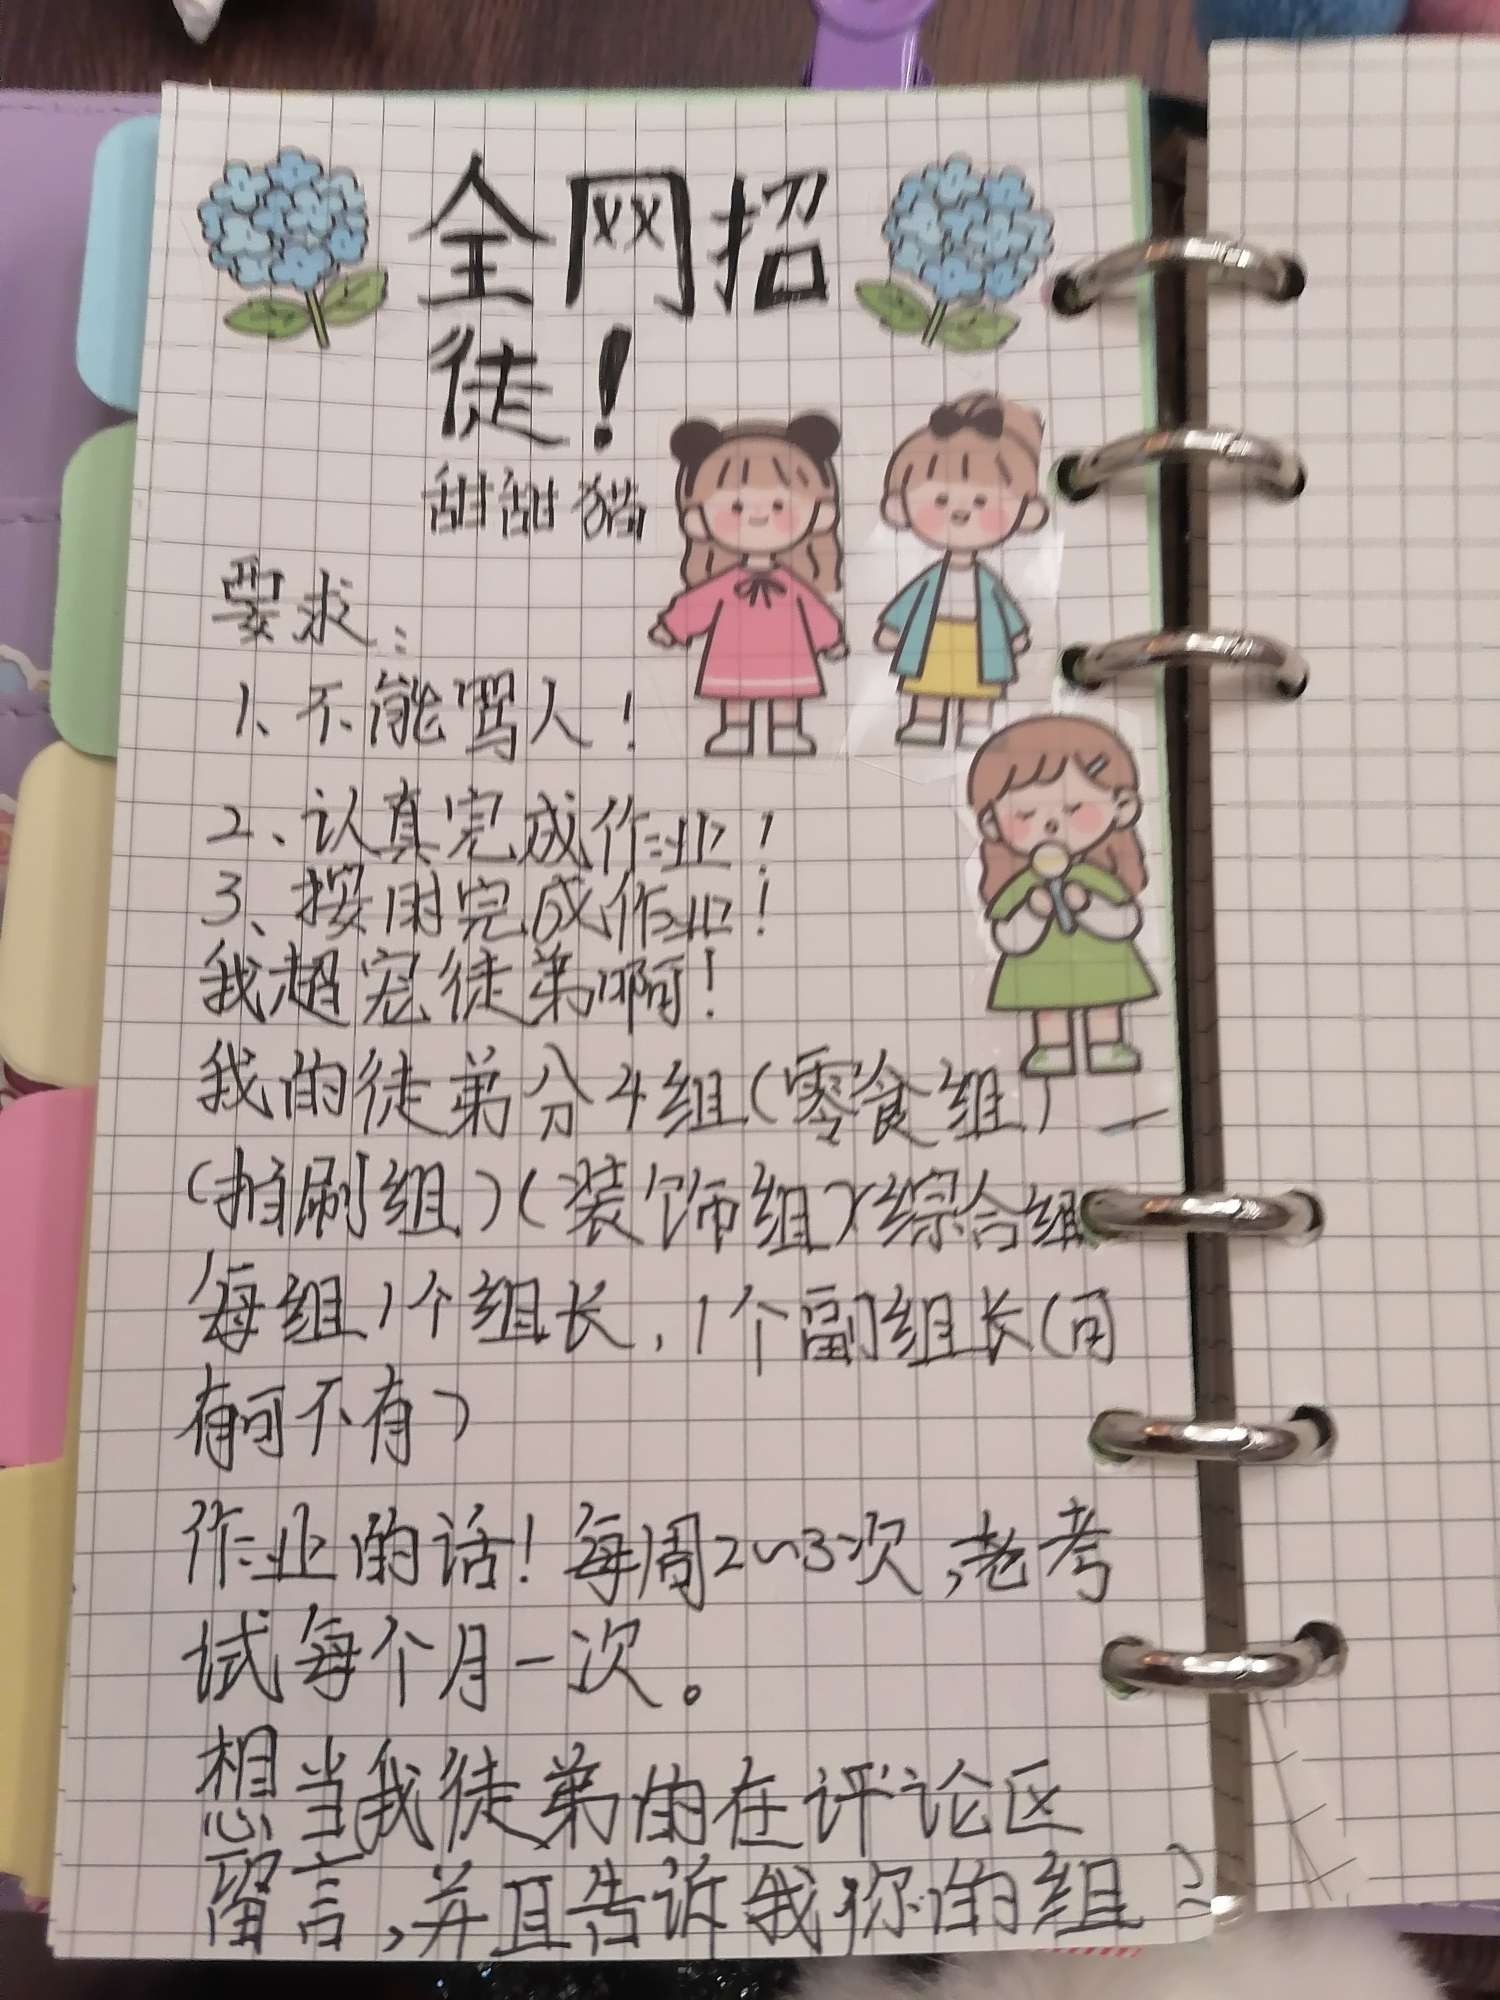 全网招
徒！
甜甜猫
要求：
1、不能骂人！
2、认真完成作业！
3、按时完成作业！
我超宠徒弟啊！
我的徒弟分4组（零食组）
（拍刷组）（装饰组）（综合组
每组1个组长，1个副组长（可
有可不有）
作业的话！每周2~3次，老考
试每个月一次。
想当我徒弟的在评论区
留言，并且告诉我你的组